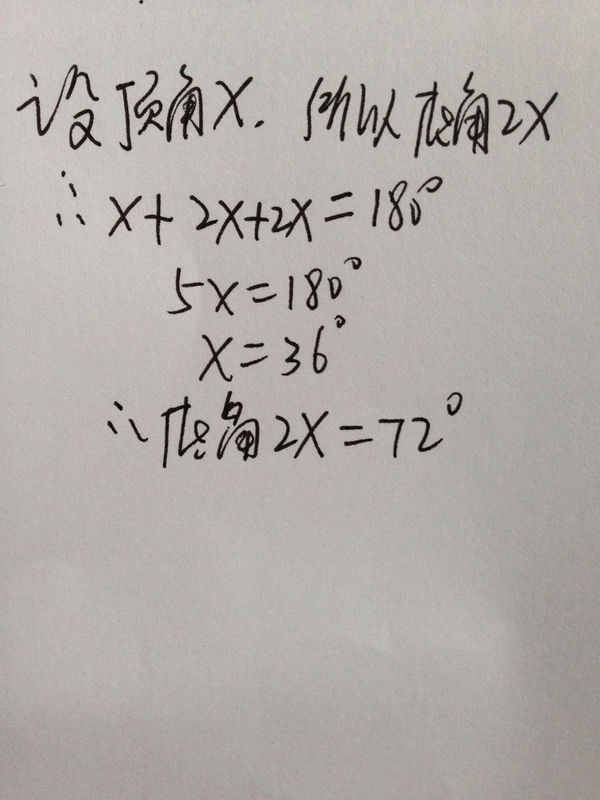 设顶角X. 所以底角2X
∴ X+2X+2X=180°
5X=180°
X=36°
∴底角2X=72°